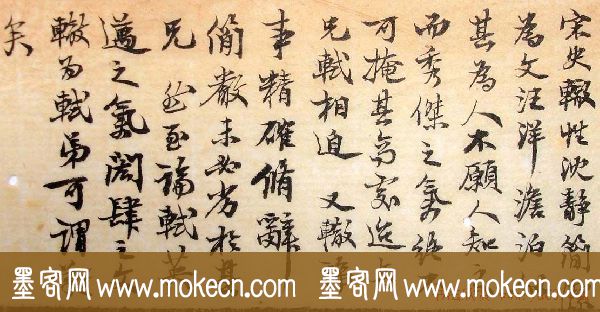 宋史轍性沈静簡
為文汪洋澹泊
其為人不願人知之
而秀傑之氣終
可掩其高處迨
兄軾相迫 又轍
事精確脩辭
簡嚴未必劣於其
兄 至論軾英
邁之氣閎肆之
轍為軾弟可謂
矣
墨客网 www.mokecn.com 墨客网 www.mokecn.com